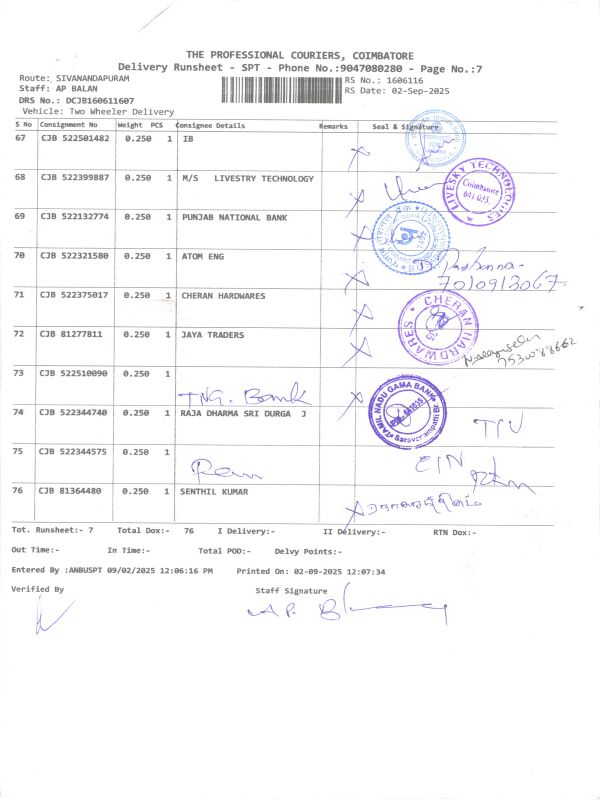 THE PROFESSIONAL COURIERS, COIMBATORE
Delivery Runsheet - SPT - Phone No.:9047080280 - Page No.:7
Route: SIVANANDAPURAM
RS No.: 1606116
Staff: AP BALAN
RS Date: 02-Sep-2025
DRS No.: DCJB160611607
Vehicle: Two Wheeler Delivery
S No Consignment No Weight PCS Consignee Details Remarks Seal & Signature
67 CJB 522501482 0.250 1 IB
68 CJB 522399887 0.250 1 M/S LIVESTRY TECHNOLOGY
LIVESKY TECHNOLOGIES
Coimbatore
641 035.
69 CJB 522132774 0.250 1 PUNJAB NATIONAL BANK
70 CJB 522321580 0.250 1 ATOM ENG
71 CJB 522375017 0.250 1 CHERAN HARDWARES
CHERAN HARDWARES
72 CJB 81277811 0.250 1 JAYA TRADERS
73 CJB 522510090 0.250 1
TNG. Bank
TAMIL NADU GAMA BANK
Saravanampatti
74 CJB 522344740 0.250 1 RAJA DHARMA SRI DURGA J
75 CJB 522344575 0.250 1
76 CJB 81364480 0.250 1 SENTHIL KUMAR
Tot. Runsheet:- 7 Total Dox:- 76 I Delivery:- II Delivery:- RTN Dox:-
Out Time:- In Time:- Total POD:- Delvy Points:-
Entered By :ANBUSPT 09/02/2025 12:06:16 PM Printed On: 02-09-2025 12:07:34
Verified By Staff Signature